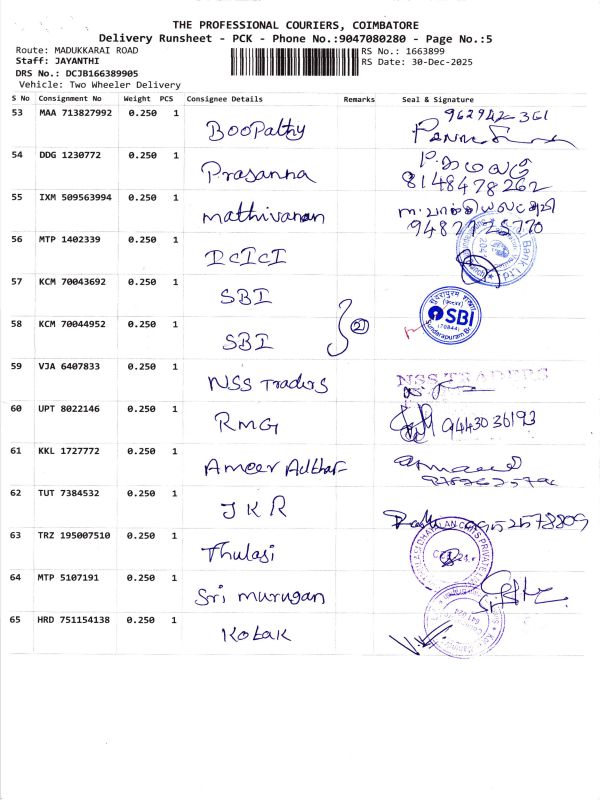 THE PROFESSIONAL COURIERS, COIMBATORE
Delivery Runsheet - PCK - Phone No.:9047080280 - Page No.:5
Route: MADUKKARAI ROAD RS No.: 1663899
Staff: JAYANTHI RS Date: 30-Dec-2025
DRS No.: DCJB166389905
Vehicle: Two Wheeler Delivery
S No Consignment No Weight PCS Consignee Details Remarks Seal & Signature
53 MAA 713827992 0.250 1 Boopathy 962942-361
54 DDG 1230772 0.250 1 Prasanna 8148478262
55 IXM 509563994 0.250 1 mathivanan 9487725770
56 MTP 1402339 0.250 1 ICICI Bank
57 KCM 70043692 0.250 1 SBI SBI
58 KCM 70044952 0.250 1 SBI 2 (70844) Sundarapuram Br.
59 VJA 6407833 0.250 1 NSS Traders NSS TRADERS
60 UPT 8022146 0.250 1 RMG 9443036193
61 KKL 1727772 0.250 1 Ameer Adthar
62 TUT 7384532 0.250 1 JKR 9952578809
63 TRZ 195007510 0.250 1 Thulasi
64 MTP 5107191 0.250 1 Sri murugan
65 HRD 751154138 0.250 1 Kotak